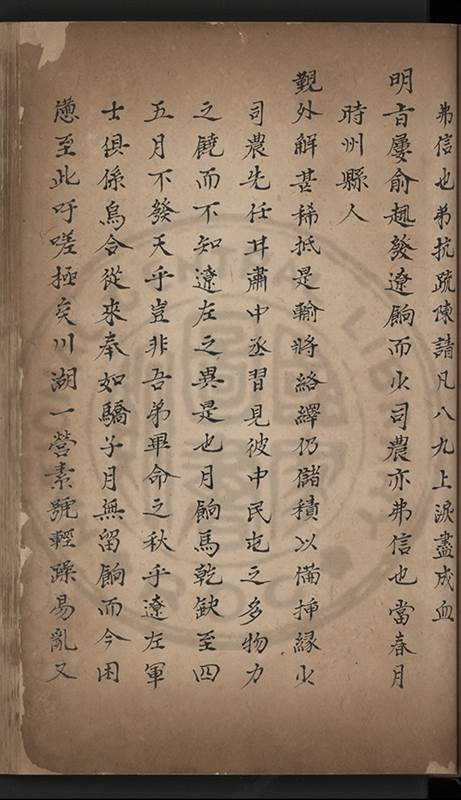 弗信也弟抗疏陳請凡八九上淚盡成血
明旨屢俞趣發遼餉而少司農亦弗信也當春月
時州縣人
覲外解甚稀抵是輸將絡繹仍儲積以備挿緣少
司農先任甘肅中丞習見彼中民屯之多物力
之饒而不知遼左之異是也月餉馬乾缺至四
五月不發天乎豈非吾弟畢命之秋乎遼左軍
士俱係烏合從來奉如驕子月無留餉而今困
憊至此吁嗟極矣川湖一營素號輕躁易亂又